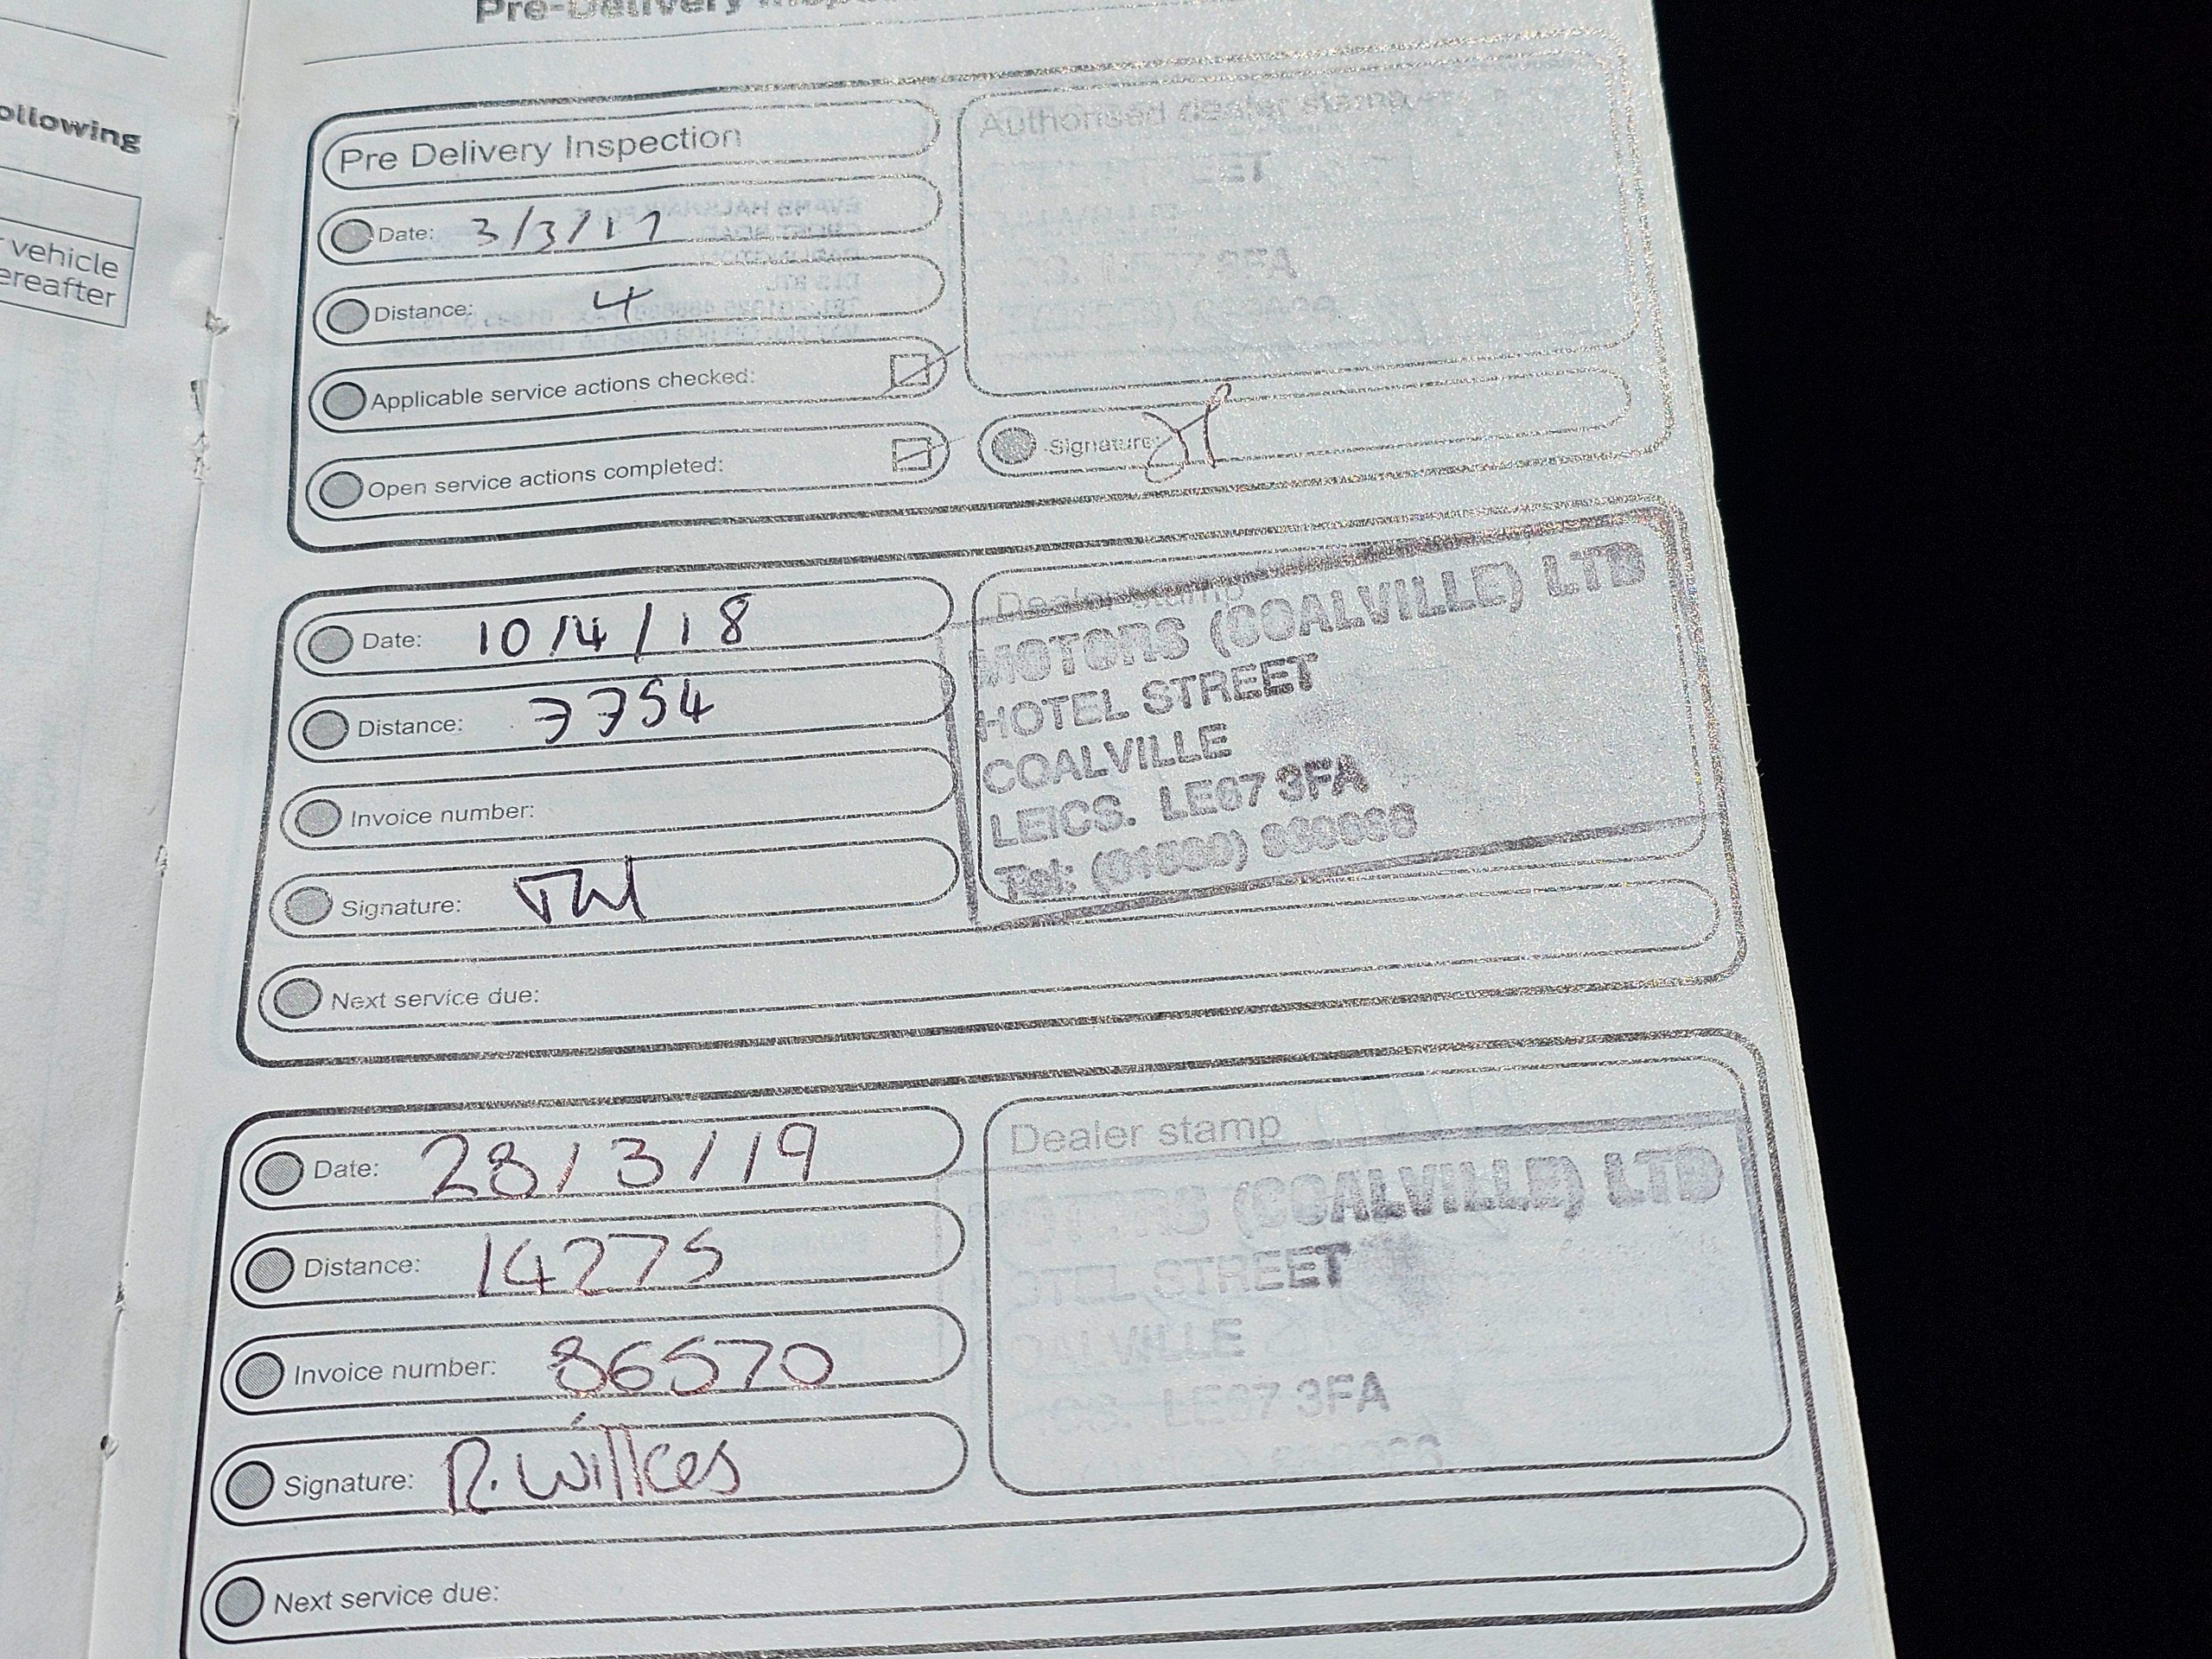 ollowing
vehicle
ereafter
Pre-Delivery
Pre Delivery Inspection
Date: 3/3/17
Distance: 4
Applicable service actions checked:
Open service actions completed:
Authorised dealer stamp
Signature:
Date: 10/4/18
Distance: 7754
Invoice number:
Signature:
Next service due:
Dealer stamp
MOTORS (COALVILLE) LTD
HOTEL STREET
COALVILLE
LEICS. LE67 3FA
Tel:
Date: 28/3/19
Distance: 14275
Invoice number: 86570
Signature: R. Wilkes
Next service due:
Dealer stamp
(COALVILLE) LTD
STREET
LE67 3FA